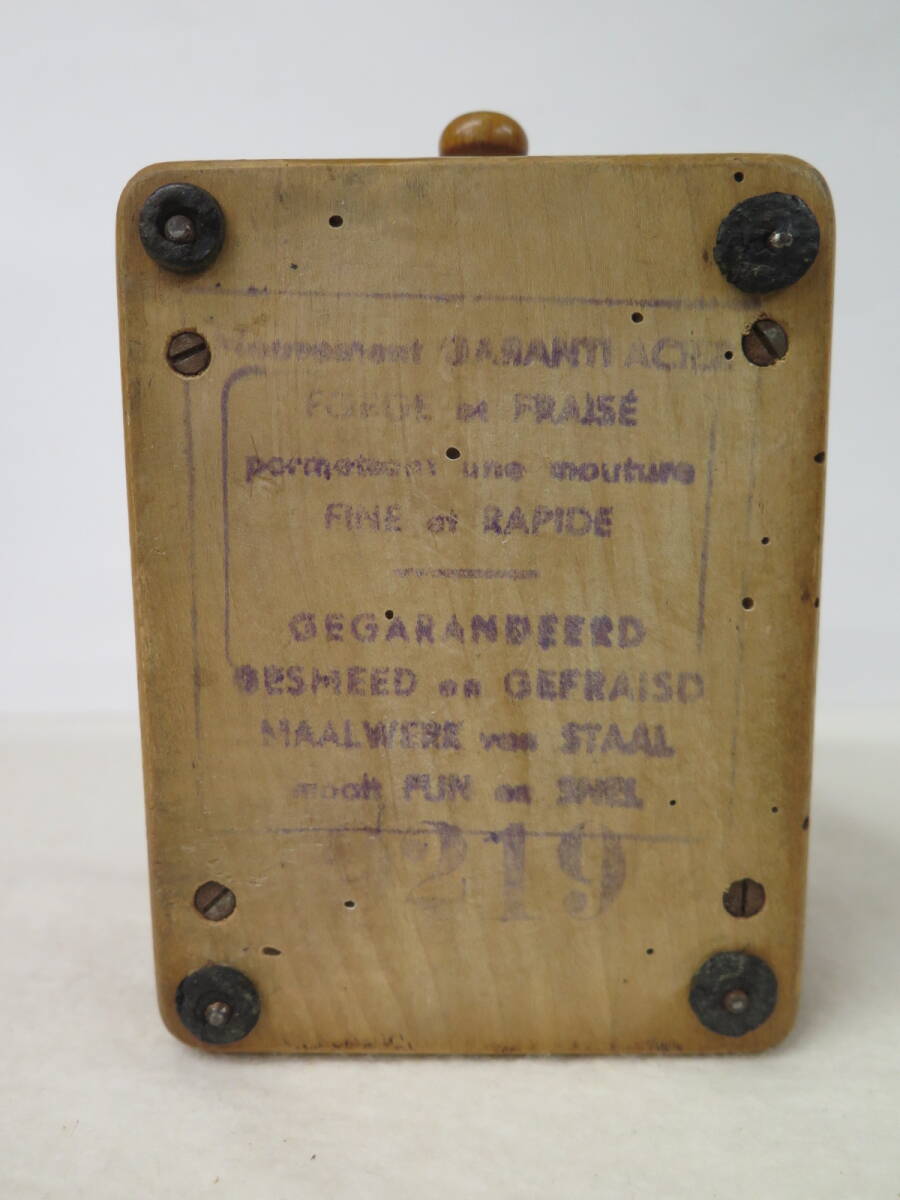 Mouvement GARANTI ACIER
FORGÉ et FRAISÉ
permettant une mouture
FINE et RAPIDE
GEGARANDEERD
GESMEED en GEFRAISD
MAALWERK van STAAL
maalt FIJN en SNEL
219